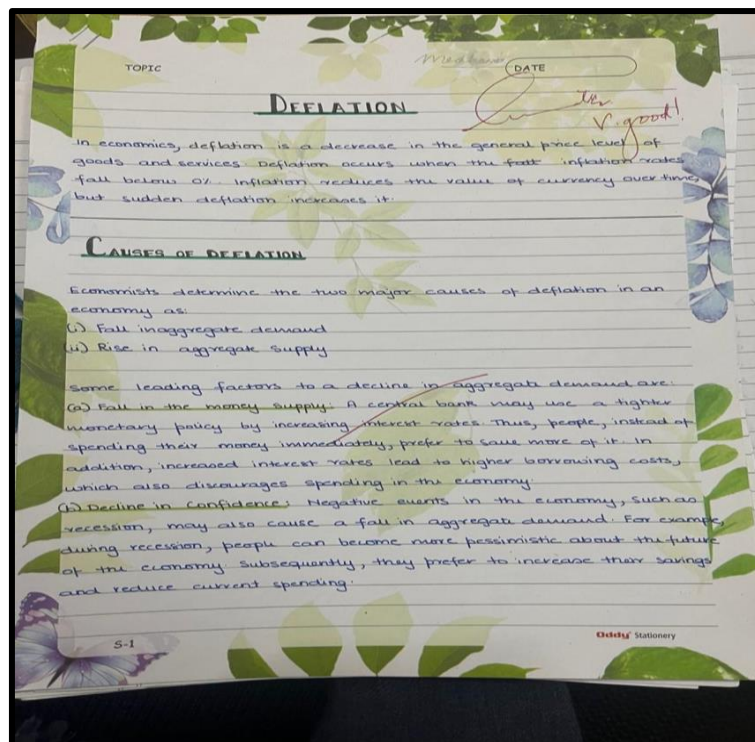 TOPIC
DATE
DEFLATION
V. good!
In economics, deflation is a decrease in the general price level of
goods and services. Deflation occurs when the inflation rates
fall below 0%. Inflation reduces the value of currency over time,
but sudden deflation increases it.
CAUSES OF DEFLATION
Economists determine the two major causes of deflation in an
economy as:
(i) Fall in aggregate demand
(ii) Rise in aggregate supply
Some leading factors to a decline in aggregate demand are:
(a) Fall in the money supply: A central bank may use a tighter
monetary policy by increasing interest rates. Thus, people, instead of
spending their money immediately, prefer to save more of it. In
addition, increased interest rates lead to higher borrowing costs,
which also discourages spending in the economy.
(b) Decline in confidence: Negative events in the economy, such as
recession, may also cause a fall in aggregate demand. For example,
during recession, people can become more pessimistic about the future
of the economy. Subsequently, they prefer to increase their savings
and reduce current spending.
S-1
Oddy Stationery